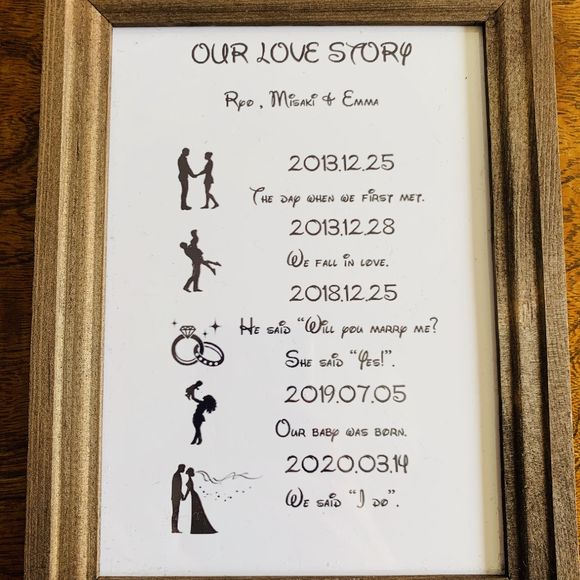 OUR LOVE STORY
Ryo, Misaki & Emma
2013.12.25
The day when we first met.
2013.12.28
We fall in love.
2018.12.25
He said “Will you marry me?
She said “Yes!”.
2019.07.05
Our baby was born.
2020.03.14
We said “I do”.